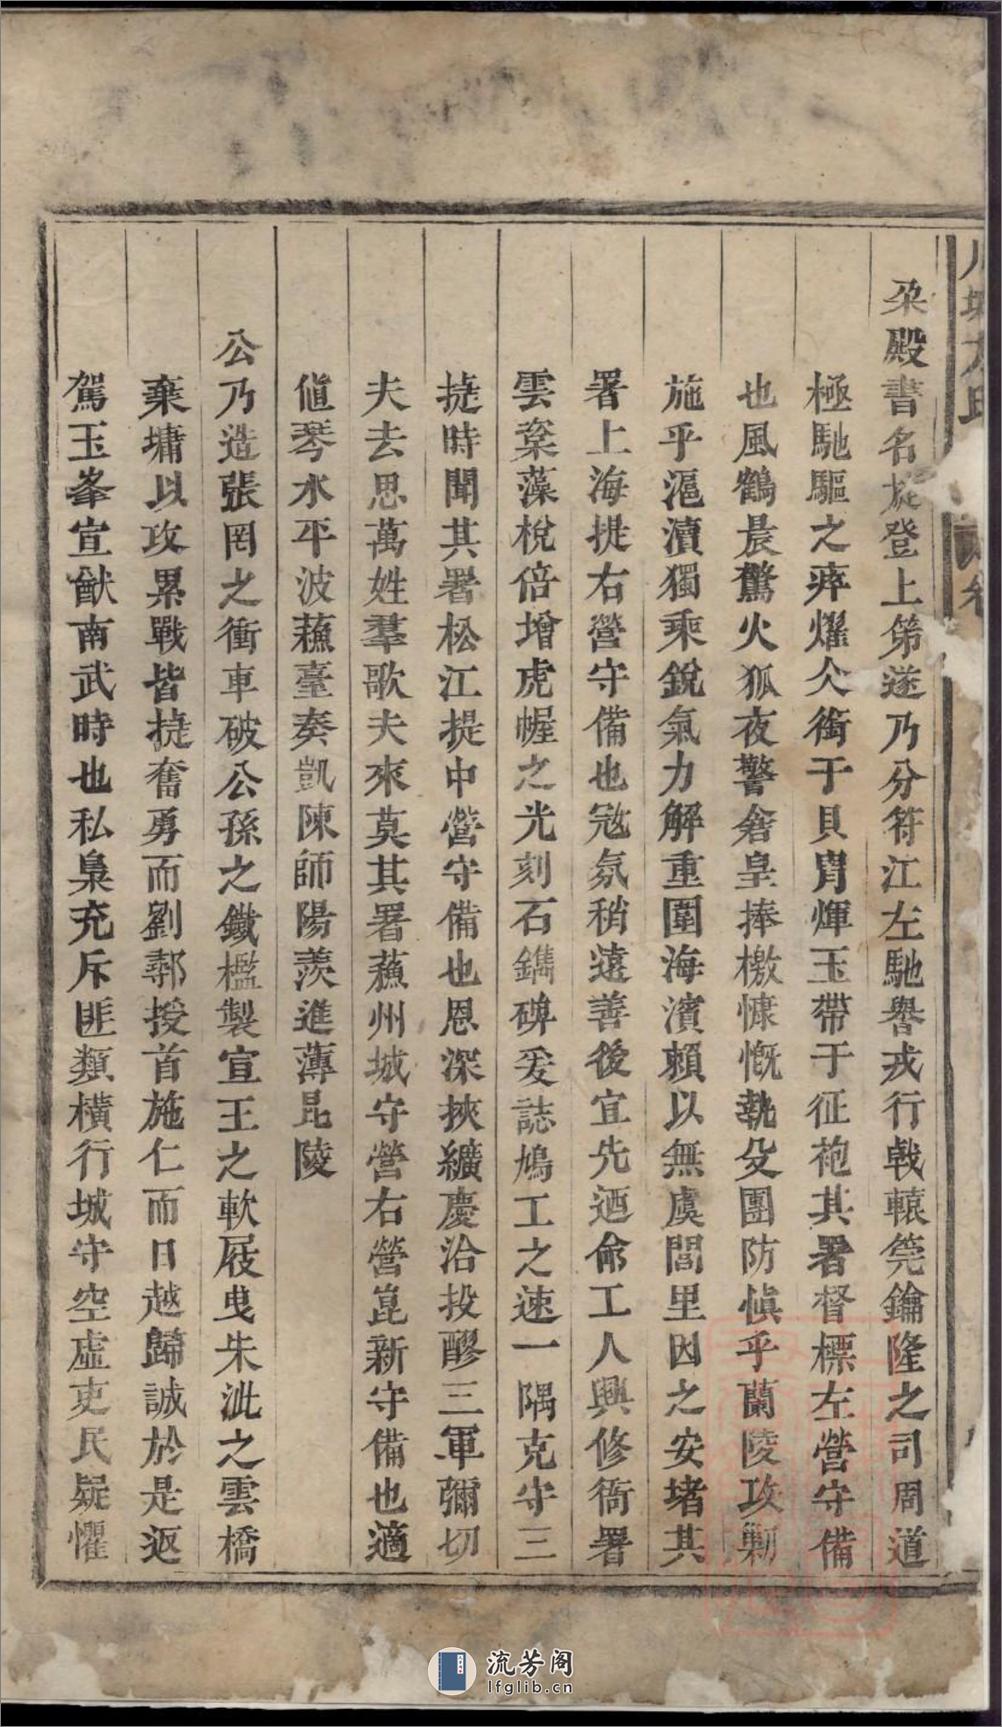 朶殿書名旋登上第遂乃分符江左馳譽戎行戟轅筦鑰隆之司周道
極馳驅之瘁燿仌衘于貝胄煇玉帶于征袍其署督標左營守備
也風鶴晨驚火狐夜警奢皇捧檄慷慨執殳團防慎乎蘭陵攻剿
施乎滬瀆獨乘銳氣力解重圍海濱賴以無虞閭里因之安堵其
署上海提右營守備也宼氛稍遠善後宜先迺命工人興修衙署
雲楶藻梲倍增虎幄之光刻石鐫碑爰誌鳩工之速一隅克守三
㨗時聞其署松江提中營守備也恩深挾纊慶洽投醪三軍彌切
夫去思萬姓羣歌夫來莫其署蘓州城守營右營崑新守備也適
值琴水平波蘓臺奏凱陳師陽羨進薄昆陵
公乃造張罔之衝車破公孫之鐵檻製宣王之軟屐曳朱泚之雲橋
棄墉以攻累戰皆㨗奮勇而劉鄩授首施仁而日越歸誠於是返
駕玉峯宣猷南武時也私梟充斥匪類橫行城守空虛吏民疑懼
流芳阁
lfglib.cn